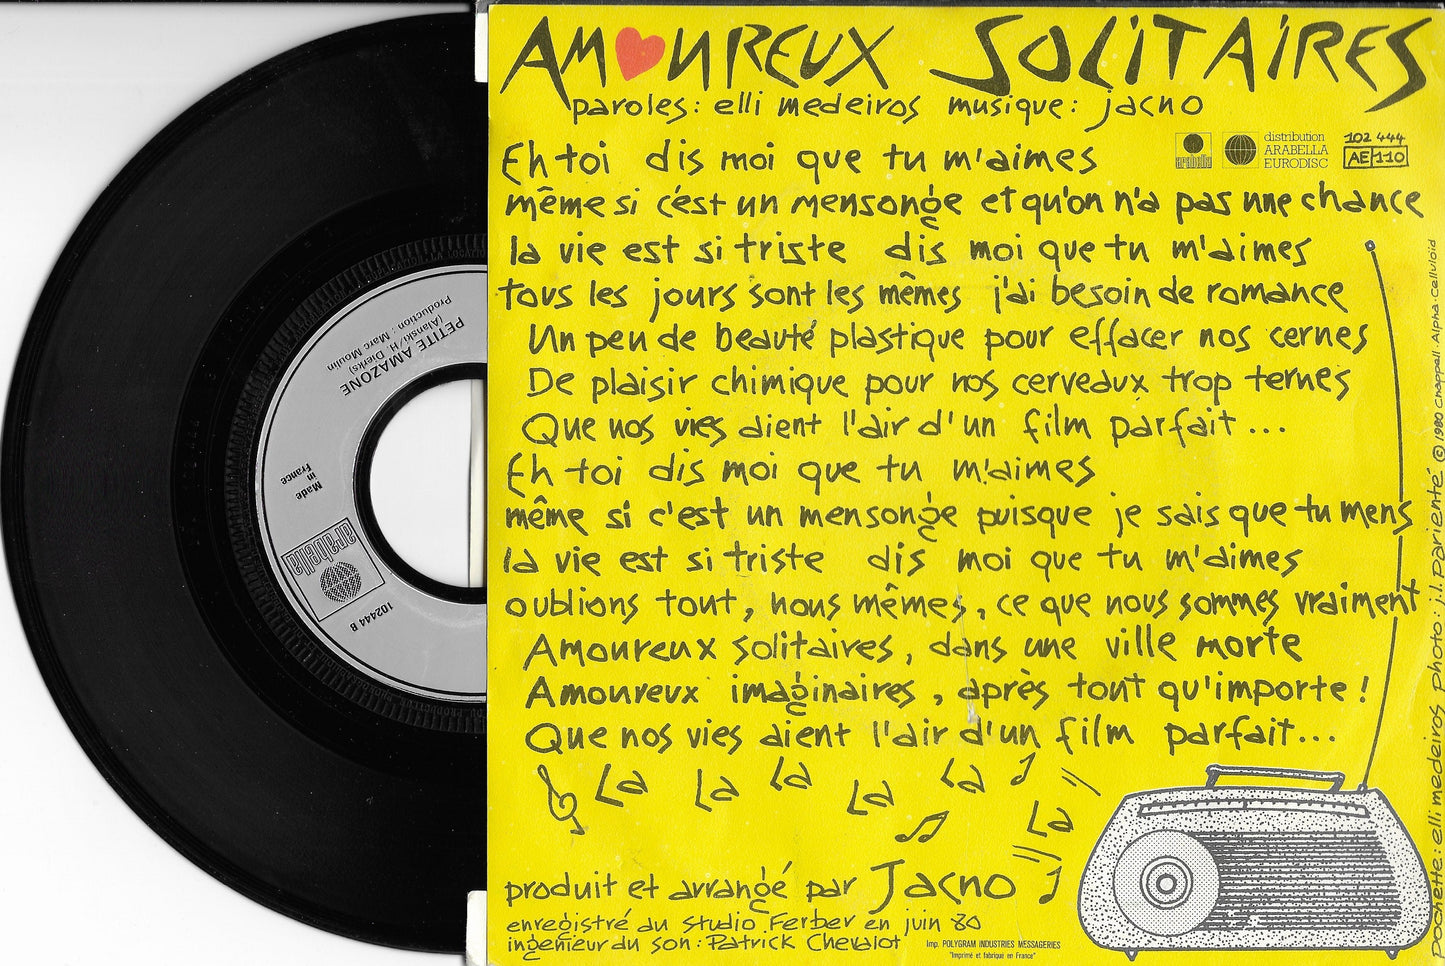 AMOUREUX SOLITAIRES
paroles: elli medeiros musique: jacno
arabella
distribution
ARABELLA
EURODISC
102 444
AE 110
Eh toi dis moi que tu m'aimes
même si c'est un mensonge et qu'on n'a pas une chance
la vie est si triste dis moi que tu m'aimes
tous les jours sont les mêmes j'ai besoin de romance
Un peu de beauté plastique pour effacer nos cernes
De plaisir chimique pour nos cerveaux trop ternes
Que nos vies aient l'air d'un film parfait...
Eh toi dis moi que tu m'aimes
même si c'est un mensonge puisque je sais que tu mens
la vie est si triste dis moi que tu m'aimes
oublions tout, nous mêmes, ce que nous sommes vraiment
Amoureux solitaires, dans une ville morte
Amoureux imaginaires, après tout qu'importe!
Que nos vies aient l'air d'un film parfait...
La La La La La La
produit et arrangé par Jacno
enregistré au studio Ferber en juin 80
ingénieur du son: Patrick Chevalot
Imp. POLYGRAM INDUSTRIES MESSAGERIES
"Imprimé et fabriqué en France"
pochette: elli medeiros photo: j.l. Darienté © 1980 Chappell. Alpha. Celluloid
PETITE AMAZONE
(Alanski/H. Dierks)
Production : Marc Moulin
Made
in
France
arabella
102444 B